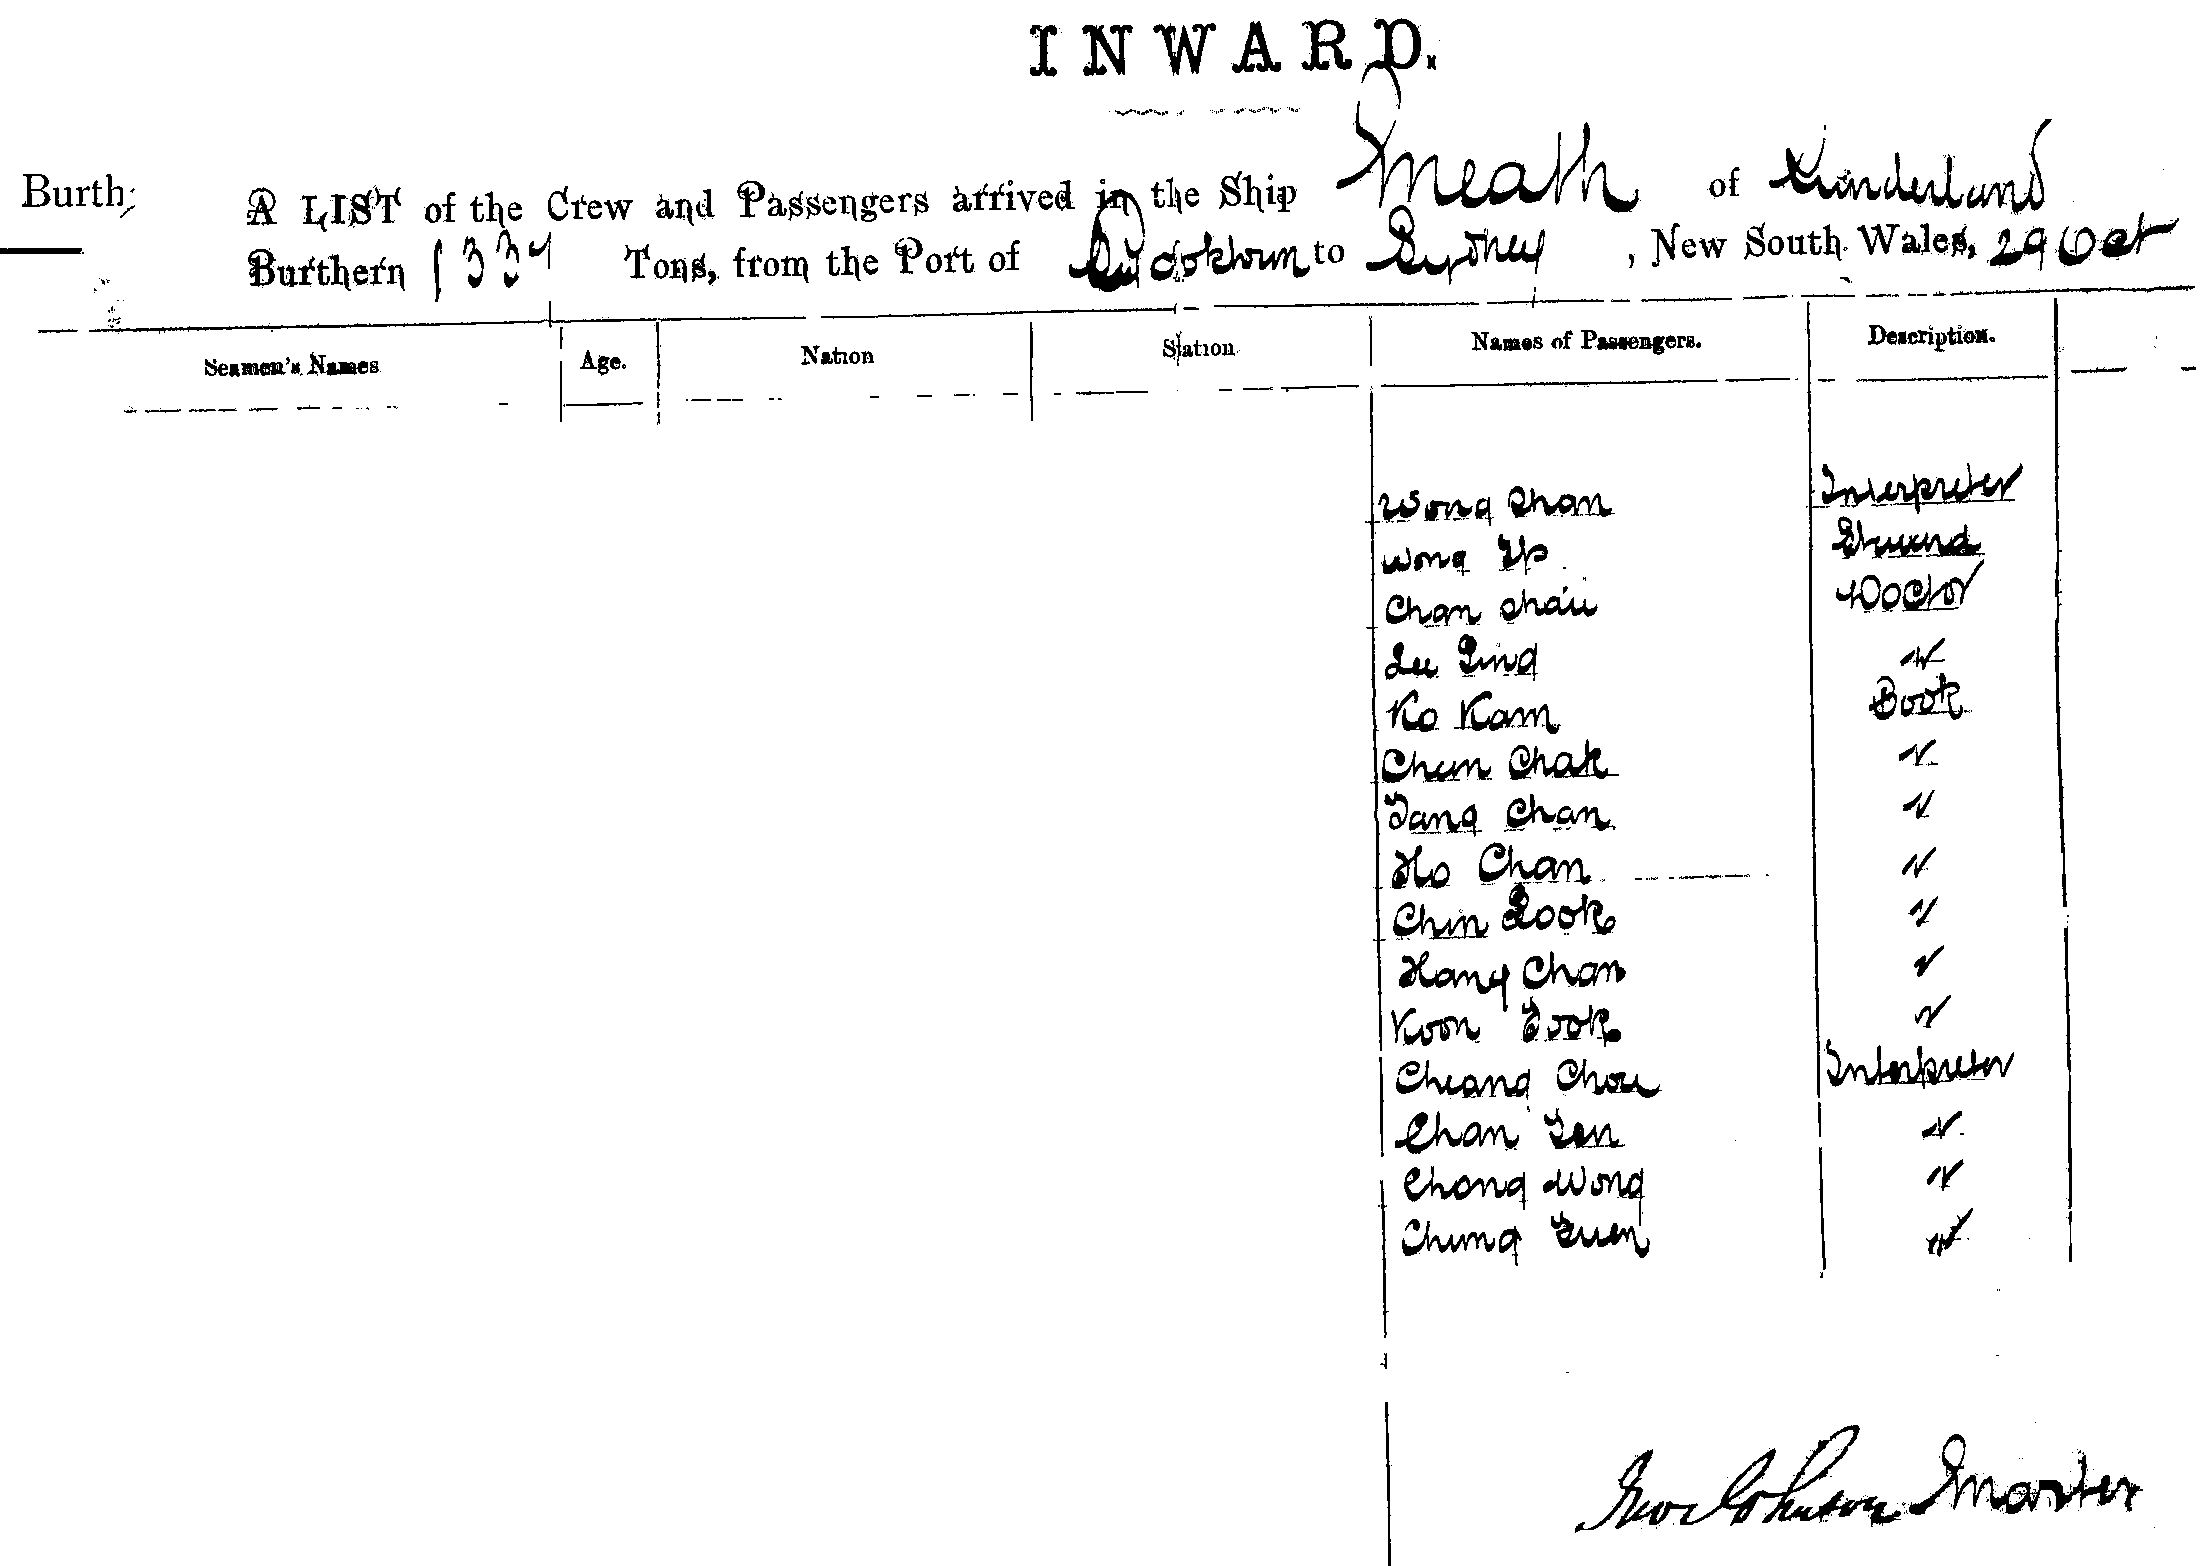 INWARD.
Burth
A LIST of the Crew and Passengers arrived in the Ship Meath of Sunderland
Burthern 1337 Tons, from the Port of to Sydney, New South Wales, 29 Oct
Seamen's Names Age. Nation Station Names of Passengers. Description.
Wong Chan Interpreter
Wong Yp Steward
Chan Chau Doctor
Lee Ling "
Ko Kam Book
Chun Chak "
Tang Chan "
Ho Chan "
Chin Look "
Hang Chan "
Koon Took "
Cheang Chou Interpreter
Chan Yen "
Chong Wong "
Chung Yuen "
Geo Johnson Master